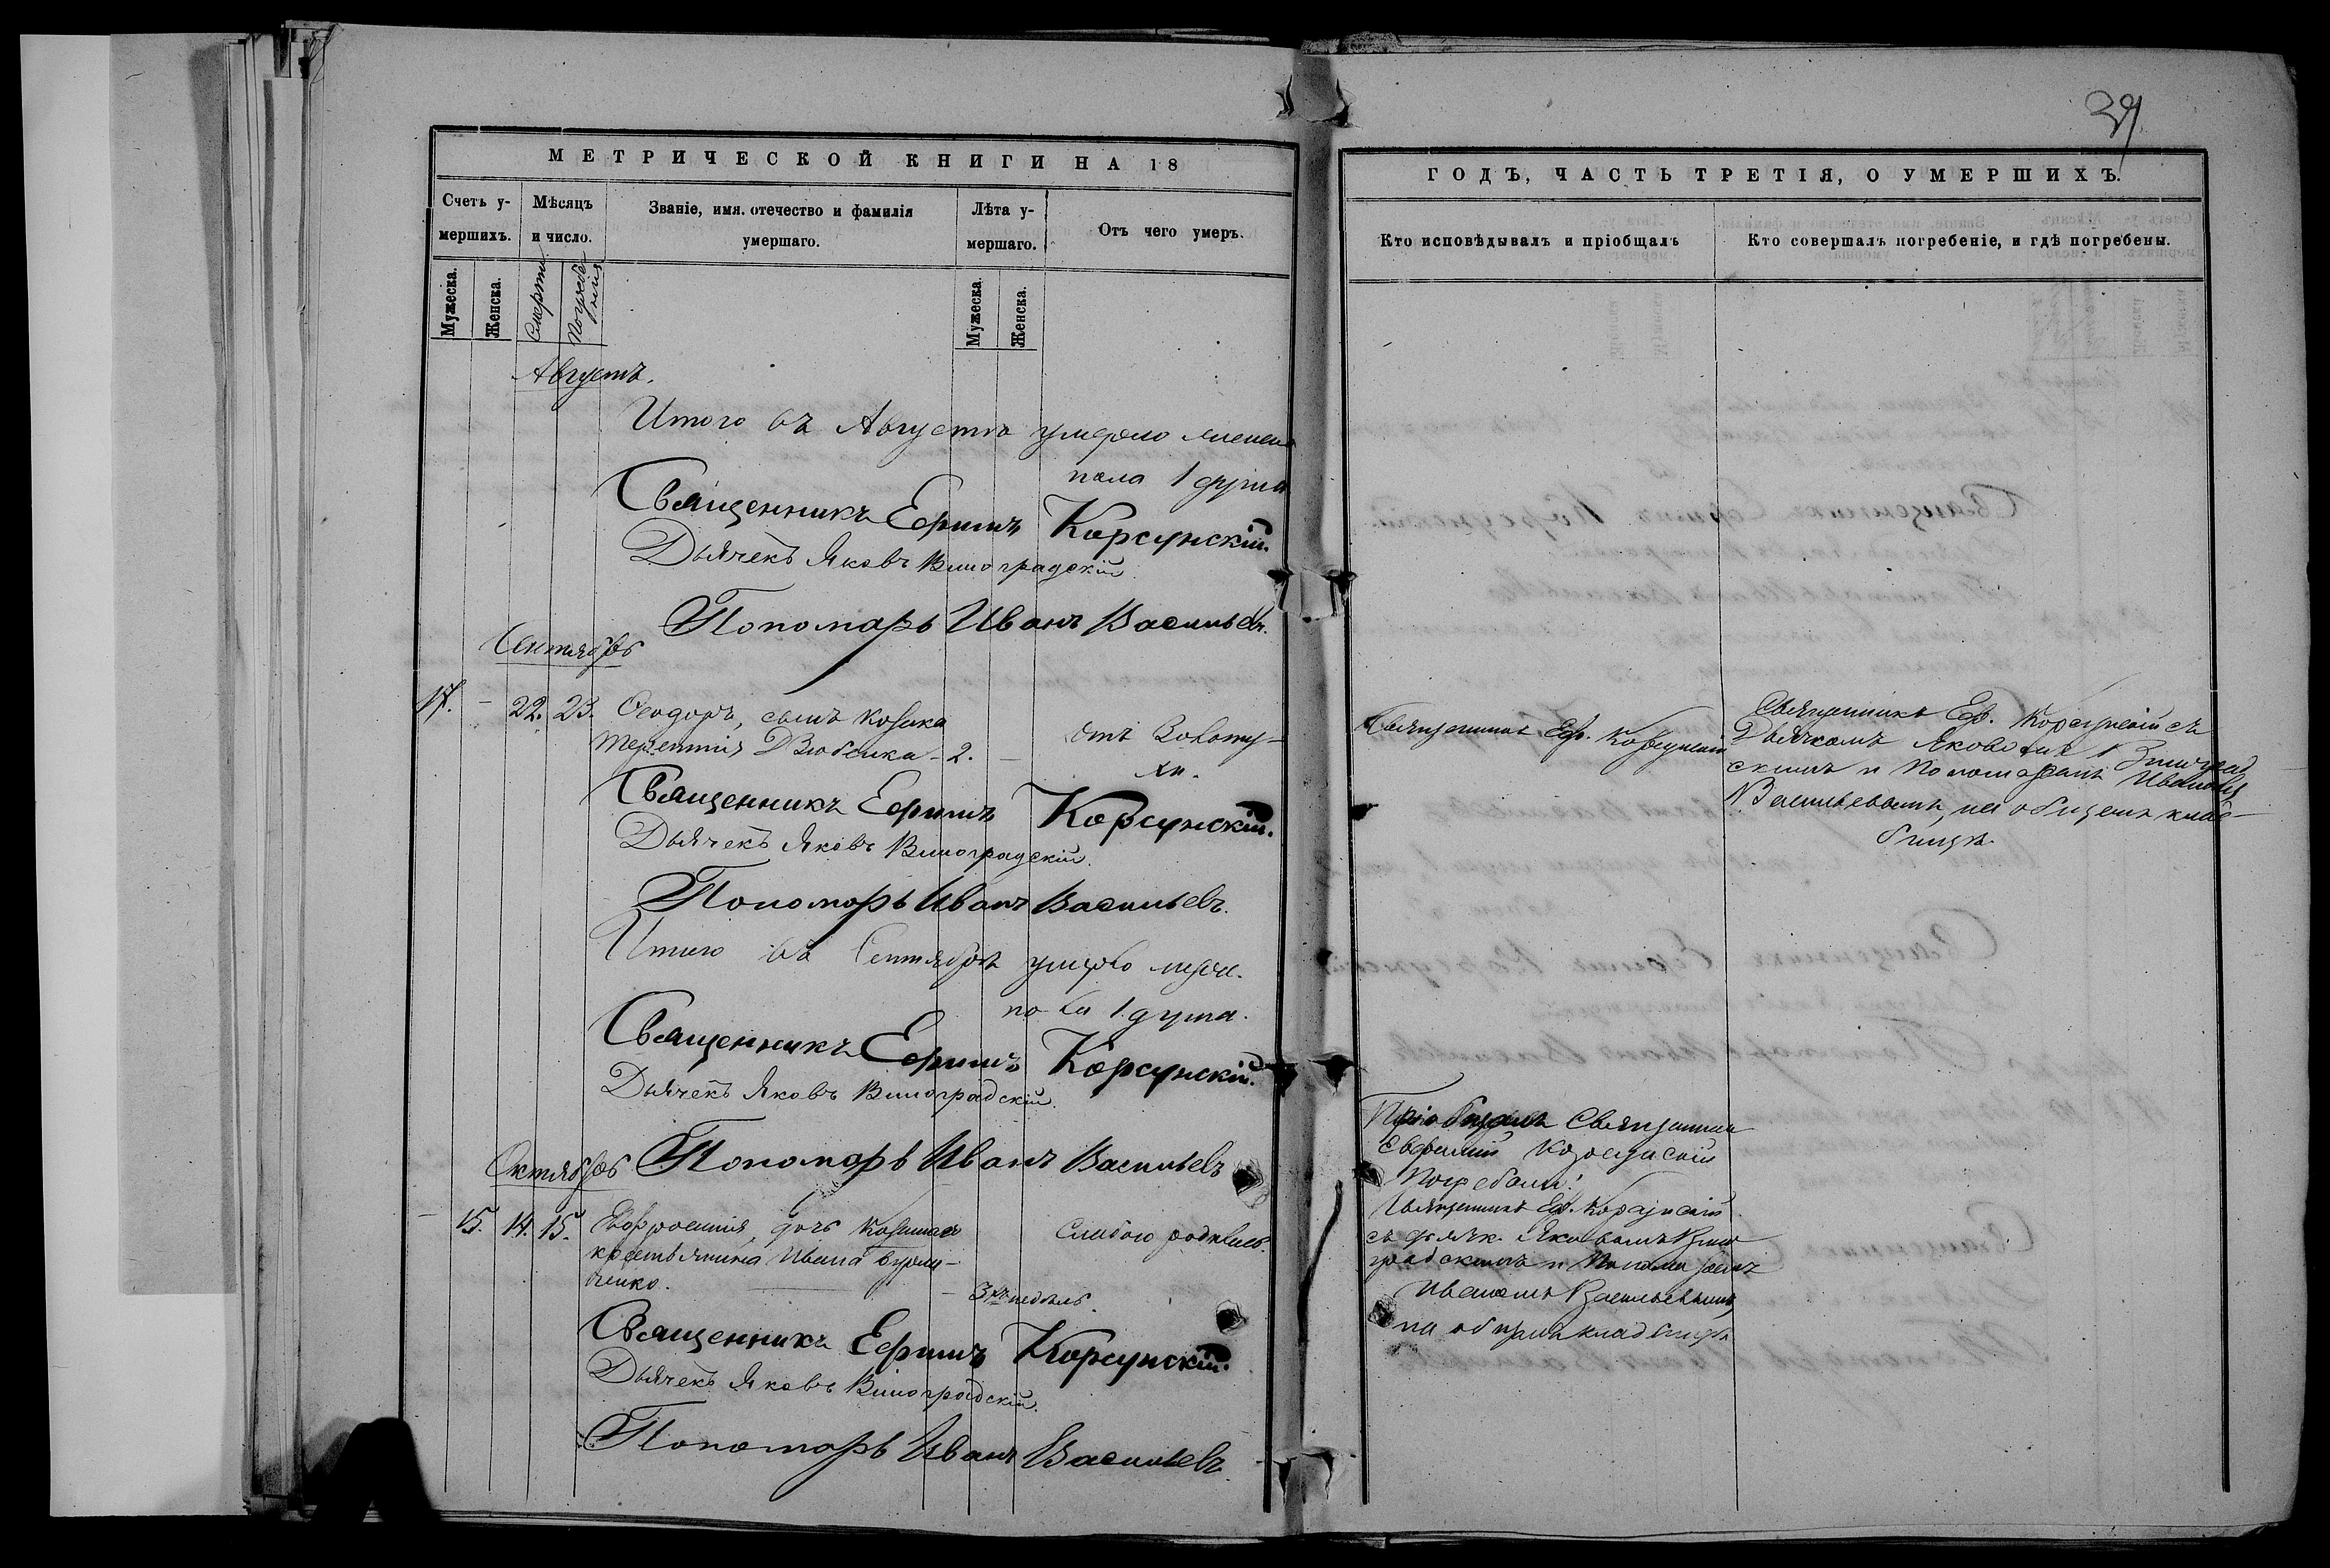 39
МЕТРИЧЕСКОЙ КНИГИ НА 18
Счетъ у-
мершихъ.
Мѣсяцъ
и число.
Званіе, имя. отечество и фамилія
умершаго.
Лѣта у-
мершаго.
Отъ чего умеръ.
Мужеска.
Женска.
Смерти
Погребе
нія
Мужеска.
Женска.
Августъ.
Итого въ Августѣ умерло женска
пола 1 душа
Священникъ Ефимъ Корсунскій.
Дьячекъ Яковъ Виноградскій.
Пономарь Иванъ Васильевъ.
Сентябрь
17. – 22. 23. Ѳеодоръ, сынъ козака
Терентія Дзюбенка – 2. –
отъ Золоту-
хи.
Священникъ Ефимъ Корсунскій.
Дьячекъ Яковъ Виноградскій.
Пономарь Иванъ Васильевъ.
Итого въ Сентябрѣ умерло муже.
пола 1 душа.
Священникъ Ефимъ Корсунскій.
Дьячекъ Яковъ Виноградскій.
Пономарь Иванъ Васильевъ
Октябрь
– 15. 14. 15. Евфросинія, дочь
крестьянина Ивана
ченко.
3хъ недѣль.
Слабою родилась.
Священникъ Ефимъ Корсунскій.
Дьячекъ Яковъ Виноградскій.
Пономарь Иванъ Васильевъ.
ГОДЪ, ЧАСТЬ ТРЕТІЯ, О УМЕРШИХЪ.
Кто исповѣдывалъ и пріобщалъ
Кто совершалъ погребеніе, и гдѣ погребены.
Священникъ Еф. Корсунскій
Священникъ Еф. Корсунскій съ
Дьячкомъ Яковомъ Виноград
скимъ и Пономаремъ Иваномъ
Васильевымъ, на общемъ клад-
бищѣ.
Пріобщалъ Священникъ
Евфимій Корсунскій
Погребали:
Священникъ Еф. Корсунскій
съ дьячк. Яковомъ Вино
градскимъ и Пономаремъ
Иваномъ Васильевымъ,
на общемъ кладбищѣ